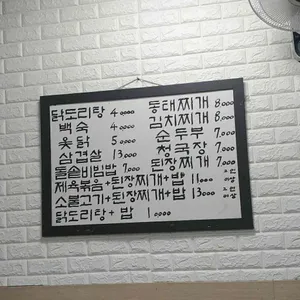 닭도리탕 4,0000
백숙 4,0000
옻닭 5,0000
삼겹살 13,000
돌솥비빔밥 7,000
제육볶음+된장찌개+밥 11,000
소불고기+된장찌개+밥 13,000
닭도리탕+밥 1,0000
동태찌개 8,000
김치찌개 8,000
순두부 7,000
청국장 7,000
된장찌개 7,000